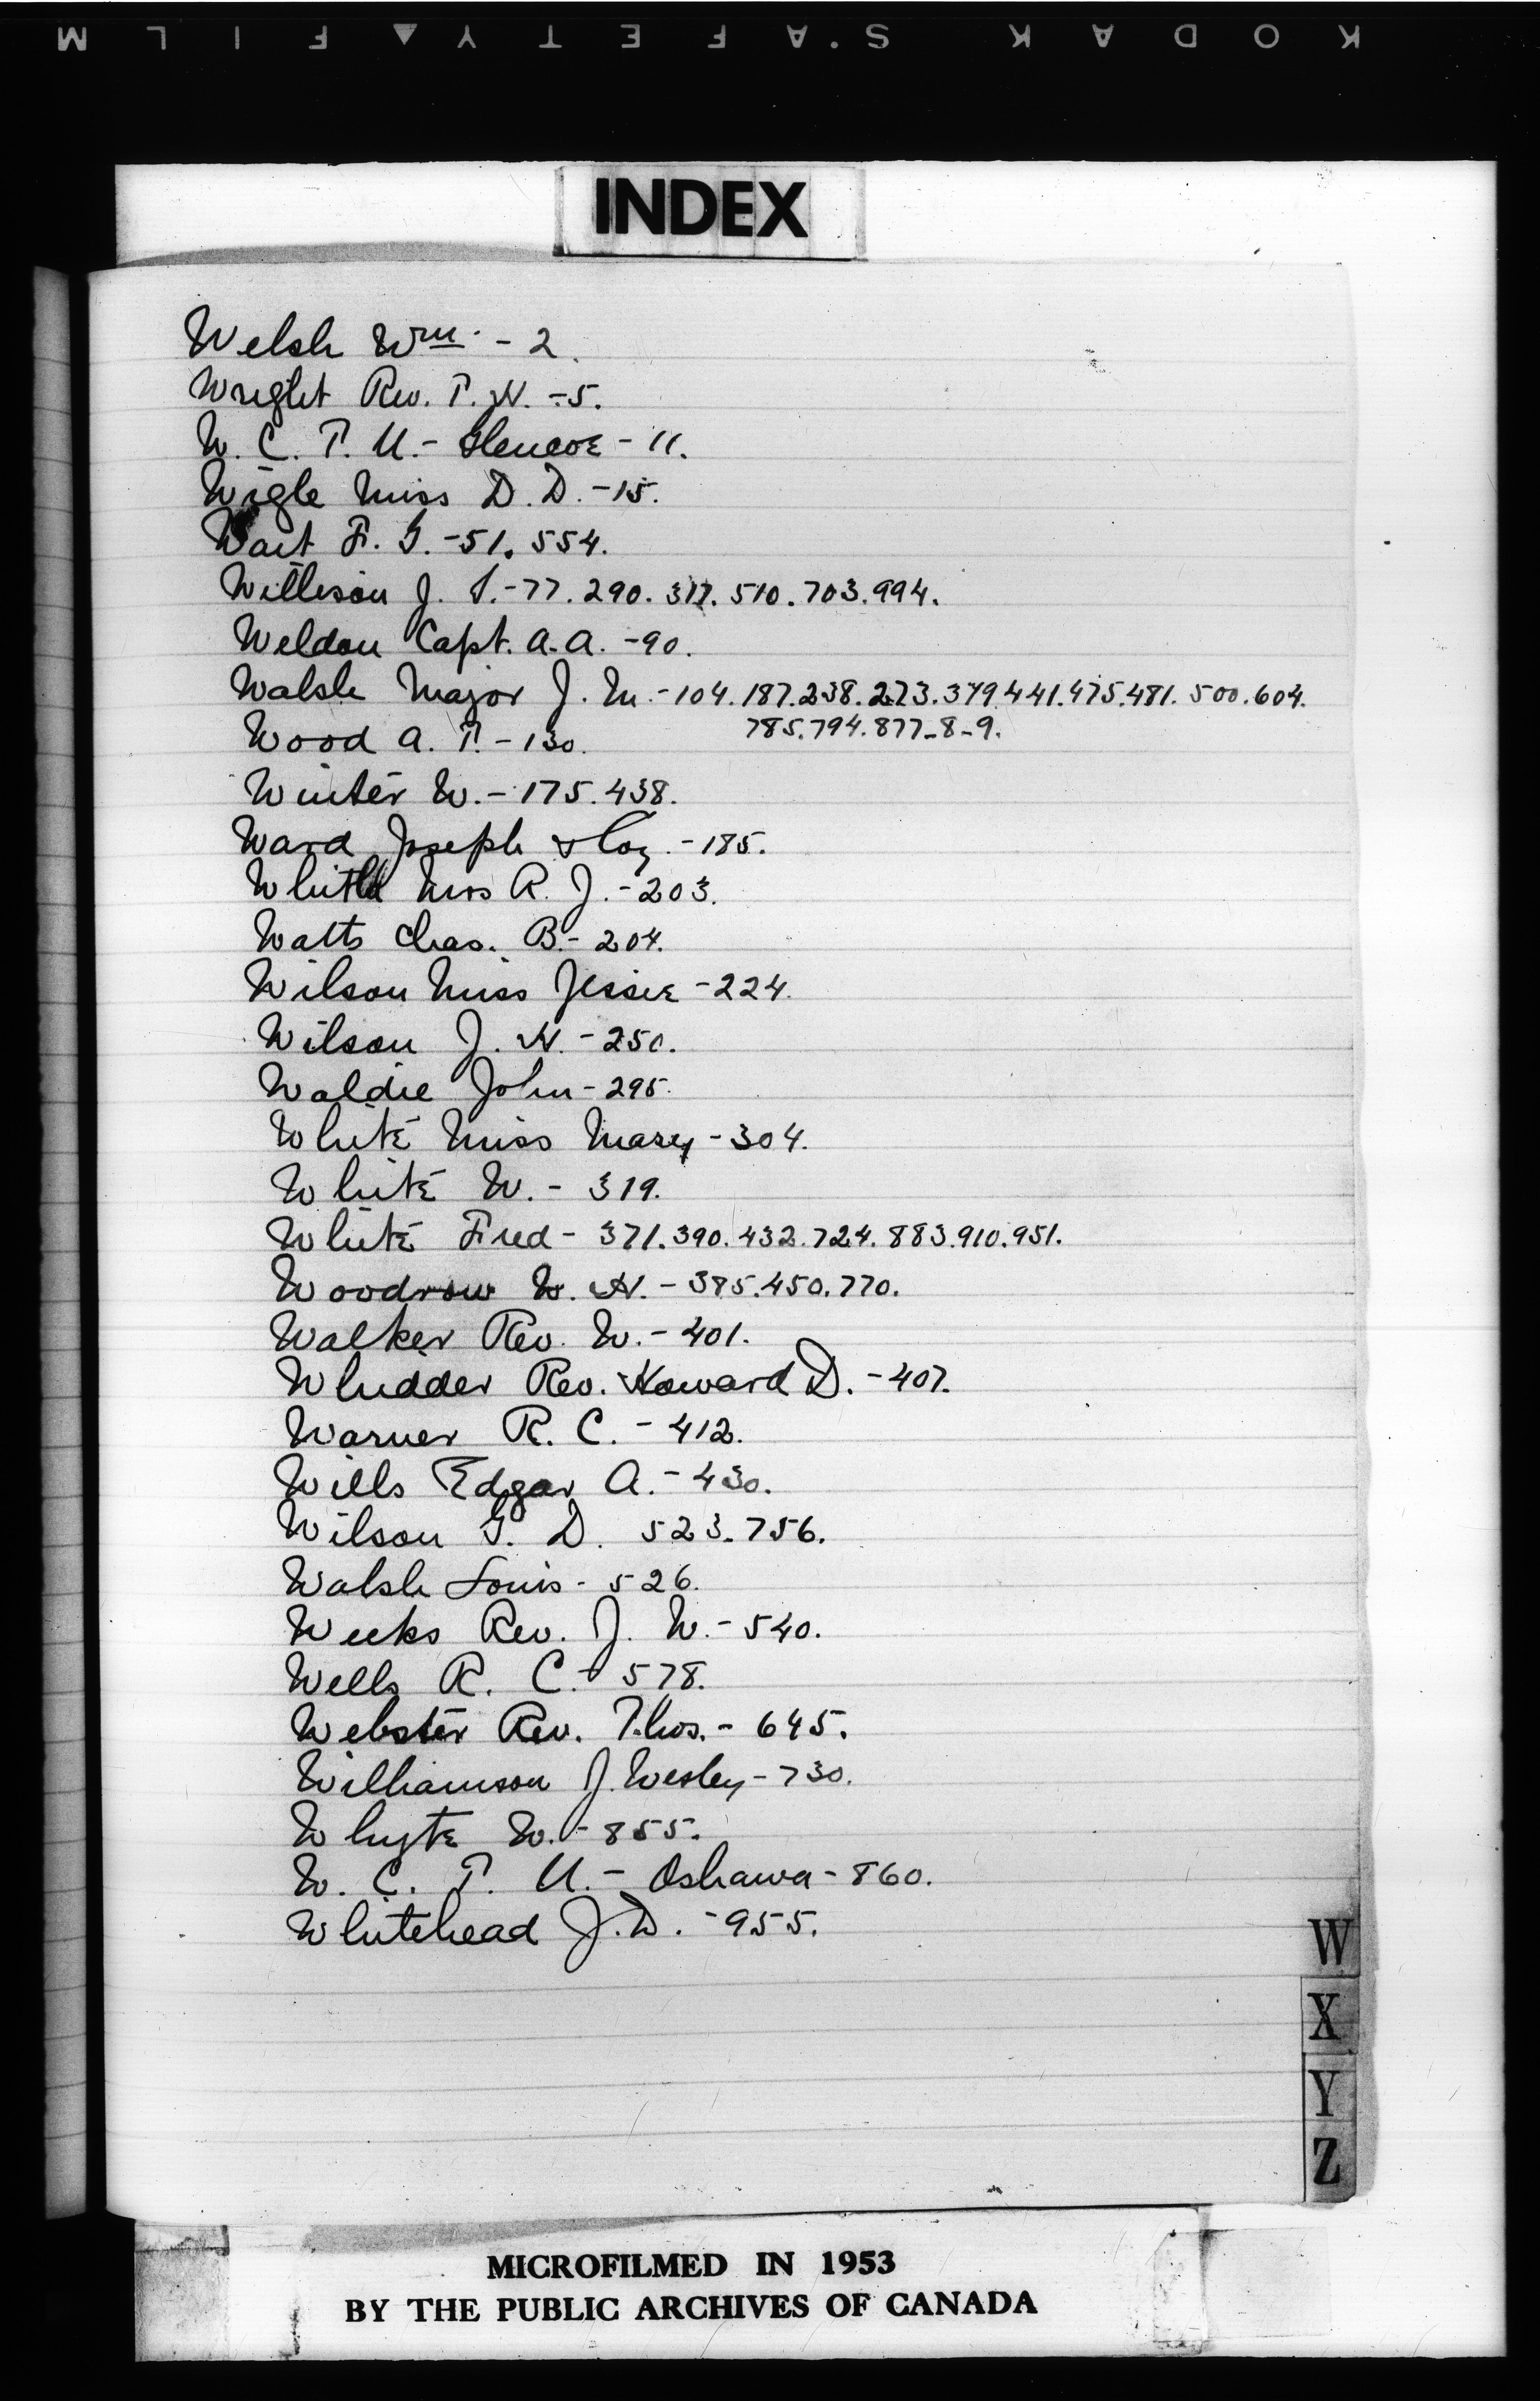 KODAK S'AFETY▲FILM
INDEX
Welsh Wm. - 2.
Wright Rev. T. H. - 5.
W. C. T. U. - Glencoe - 11.
Wigle Miss D. D. - 15.
Wait F. G. - 51. 554.
Willison J. S. - 77. 290. 317. 510. 703. 994.
Weldon Capt. A. A. - 90.
Walsh Major J. M. - 104. 187. 238. 273. 379. 441. 475. 481. 500. 604.
785. 794. 877-8-9.
Wood A. T. - 130.
Winter W. - 175. 438.
Ward Joseph & Coy. - 185.
Whitla Mrs R. J. - 203.
Watts Chas. B. - 204.
Wilson Miss Jessie - 224.
Wilson J. H. - 250.
Waldie John - 295.
White Miss Mary - 304.
White W. - 319.
White Fred - 371. 390. 432. 724. 883. 910. 951.
Woodrow W. H. - 385. 450. 770.
Walker Rev. W. - 401.
Whidder Rev. Howard D. - 407.
Warner R. C. - 412.
Wills Edgar A. - 430.
Wilson G. D. 523. 756.
Walsh Louis - 526.
Weeks Rev. J. W. - 540.
Wells R. C. - 578.
Webster Rev. Thos. - 645.
Williamson J. Wesley - 730.
Whyte W. - 855.
W. C. T. U. - Oshawa - 860.
Whitehead J. D. - 955.
W
X
Y
Z
MICROFILMED IN 1953
BY THE PUBLIC ARCHIVES OF CANADA